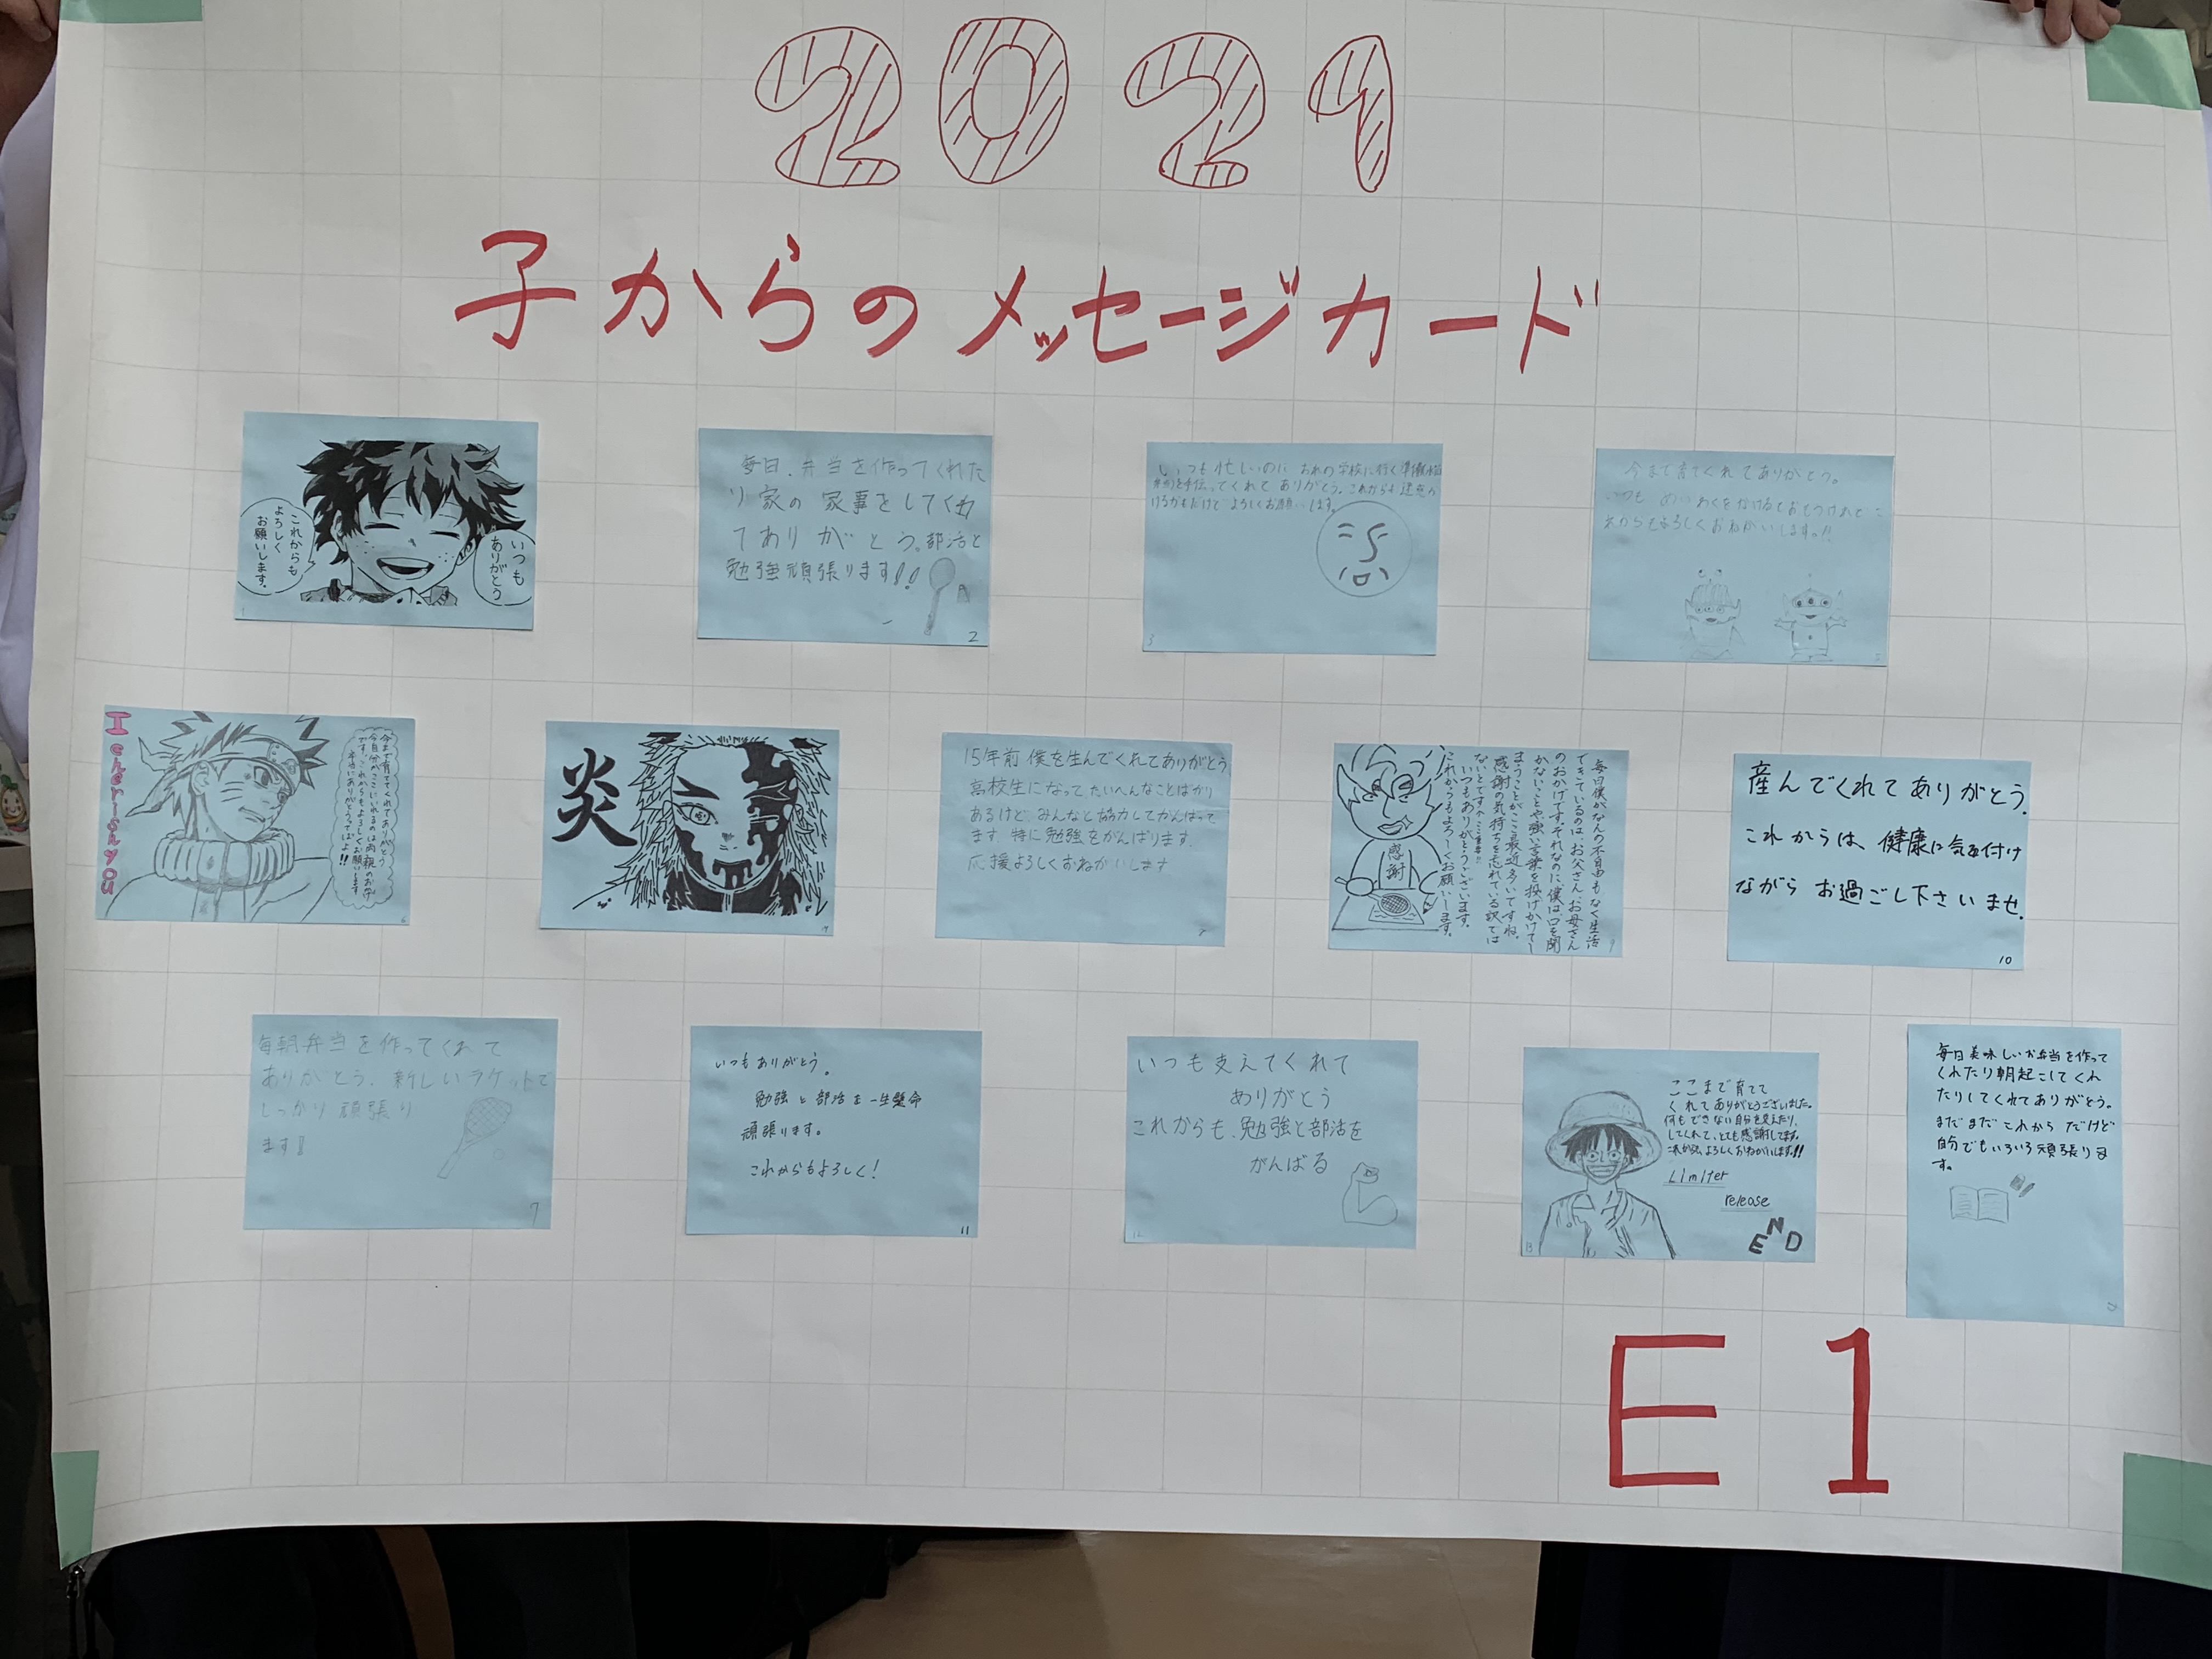 2021
子からのメッセージカード
いつも
ありがとう
これからも
よろしく
お願いします。
1
毎日、弁当を作ってくれた
り家の家事をしてくれ
てありがとう。部活と
勉強頑張ります!!
2
いつも忙しいのに おれの学校に行く準備
を手伝ってくれて ありがとう。これからも迷惑か
けるかもだけど よろしくお願いします。
3
今まで育てくれてありがとう。
いつも めいわくをかけるておもうけれど こ
れからもよろしくおねがいします。!!
5
I cherish you
今まで育ててくれてありがとう
今自分がここにいれるのは両親のおかげ
です。これからもよろしくお願いします
本当にありがとうってばよ!!
6
炎
15年前 僕を生んでくれてありがとう。
高校生になって たいへんなことばかり
あるけど、みんなと協力してがんばって
ます。特に勉強をがんばります。
応援よろしくおねがいします
感謝
毎日僕がなんの不自由もなく生活
できているのは、お父さん、お母さん
のおかげです。それなのに僕は口を聞
かないことや強い言葉を投げかけてし
まうことがここ最近多いですね。
感謝の気持ちを忘れている訳では
ないとです
いつもありがとうございます。
これからもよろしくお願いします。
9
産んでくれてありがとう。
これからは、健康に気を付け
ながら お過ごし下さいませ。
10
毎朝弁当を作ってくれて
ありがとう。新しいラケットで
しっかり頑張り
ます!!
7
いつもありがとう。
勉強と部活を一生懸命
頑張ります。
これからもよろしく!
11
いつも支えてくれて
ありがとう
これからも、勉強と部活を
がんばる
12
ここまで育てて
くれてありがとうございました。
何もできない自分を支えたり、
してくれて、とても感謝してます。
これからも、よろしくおねがいします。!!
Limiter
release
END
13
毎日美味しいお弁当を作って
くれたり朝起こしてくれ
たりしてくれてありがとう。
まだまだこれからだけど
自分でもいろいろ頑張りま
す。
E1